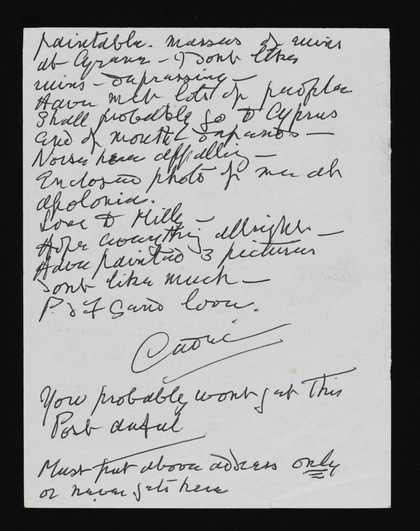 paintable. masses of ruins
at Cyrene - I dont like
ruins - depressing -
Have met lots of people
Shall probably go to Cyprus
end of month depends -
Noise here appalling -
Enclosed photo of me at
Apolonia.
Love to Milly -
Hope everything allright -
Have painted 3 pictures
dont like much -
P & F send love.
Cedric
You probably wont get this
Post awful
Must put above address only
or never gets here